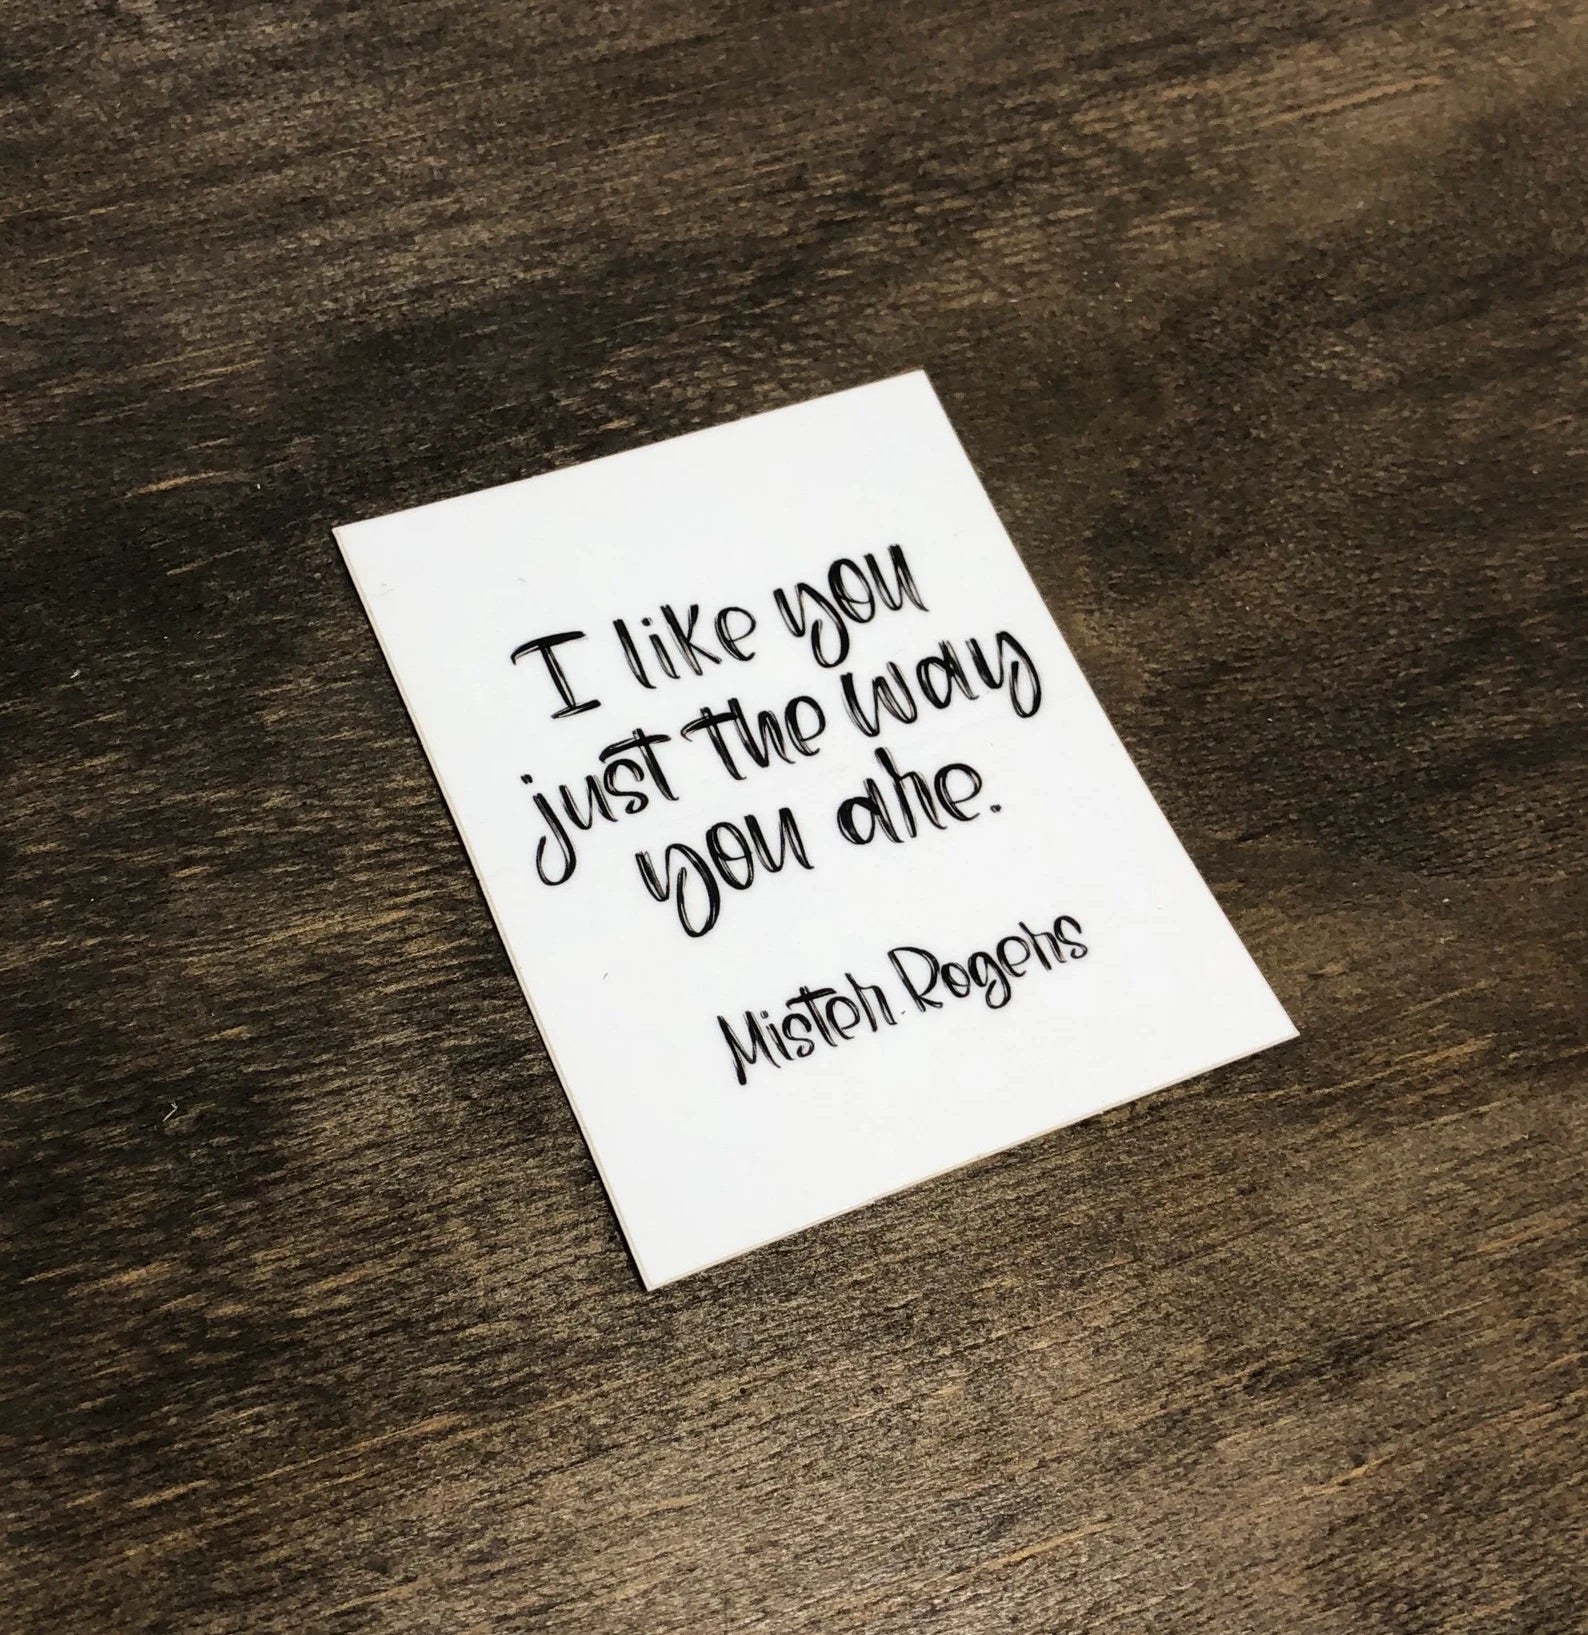 I like you
just the way
you are.
Mister Rogers